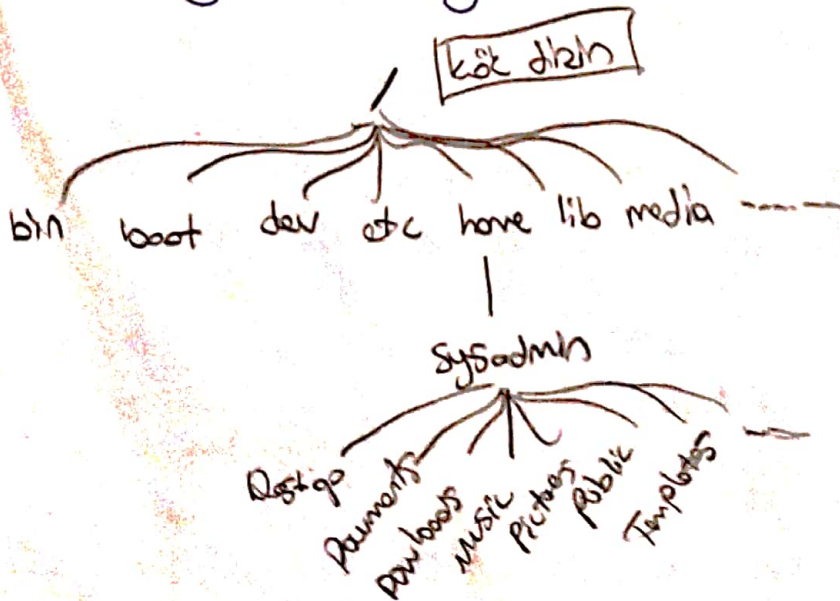 / kök dizin
bin boot dev etc home lib media
sysadmin
Documents Downloads Music Pictures Public Templates